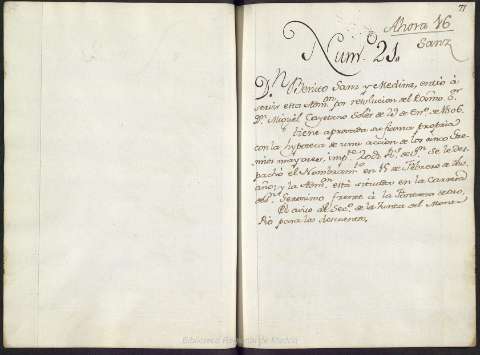 71
Ahora 16
Sanz
Num.º 21.
D.n Benito Sanz y Medina, entró à
servir esta Adm.on por resolucion del Exmo. S.or
D.n Miguel Cayetano Soler de de En.o de 1806.
tiene aprovada su fianza propia
con la hypoteca de una accion de los cinco Gre-
mios mayores, imp.te R.s de v.n Se le des-
pachó el Nombram.to en 15 de Febrero de dho
año, y la Adm.on està situada en la Carrera
de S.n Geronimo frente à la
El aviso del Sec.o de la Junta del Monte
Pio para los descuentos.
Biblioteca Regional de Madrid